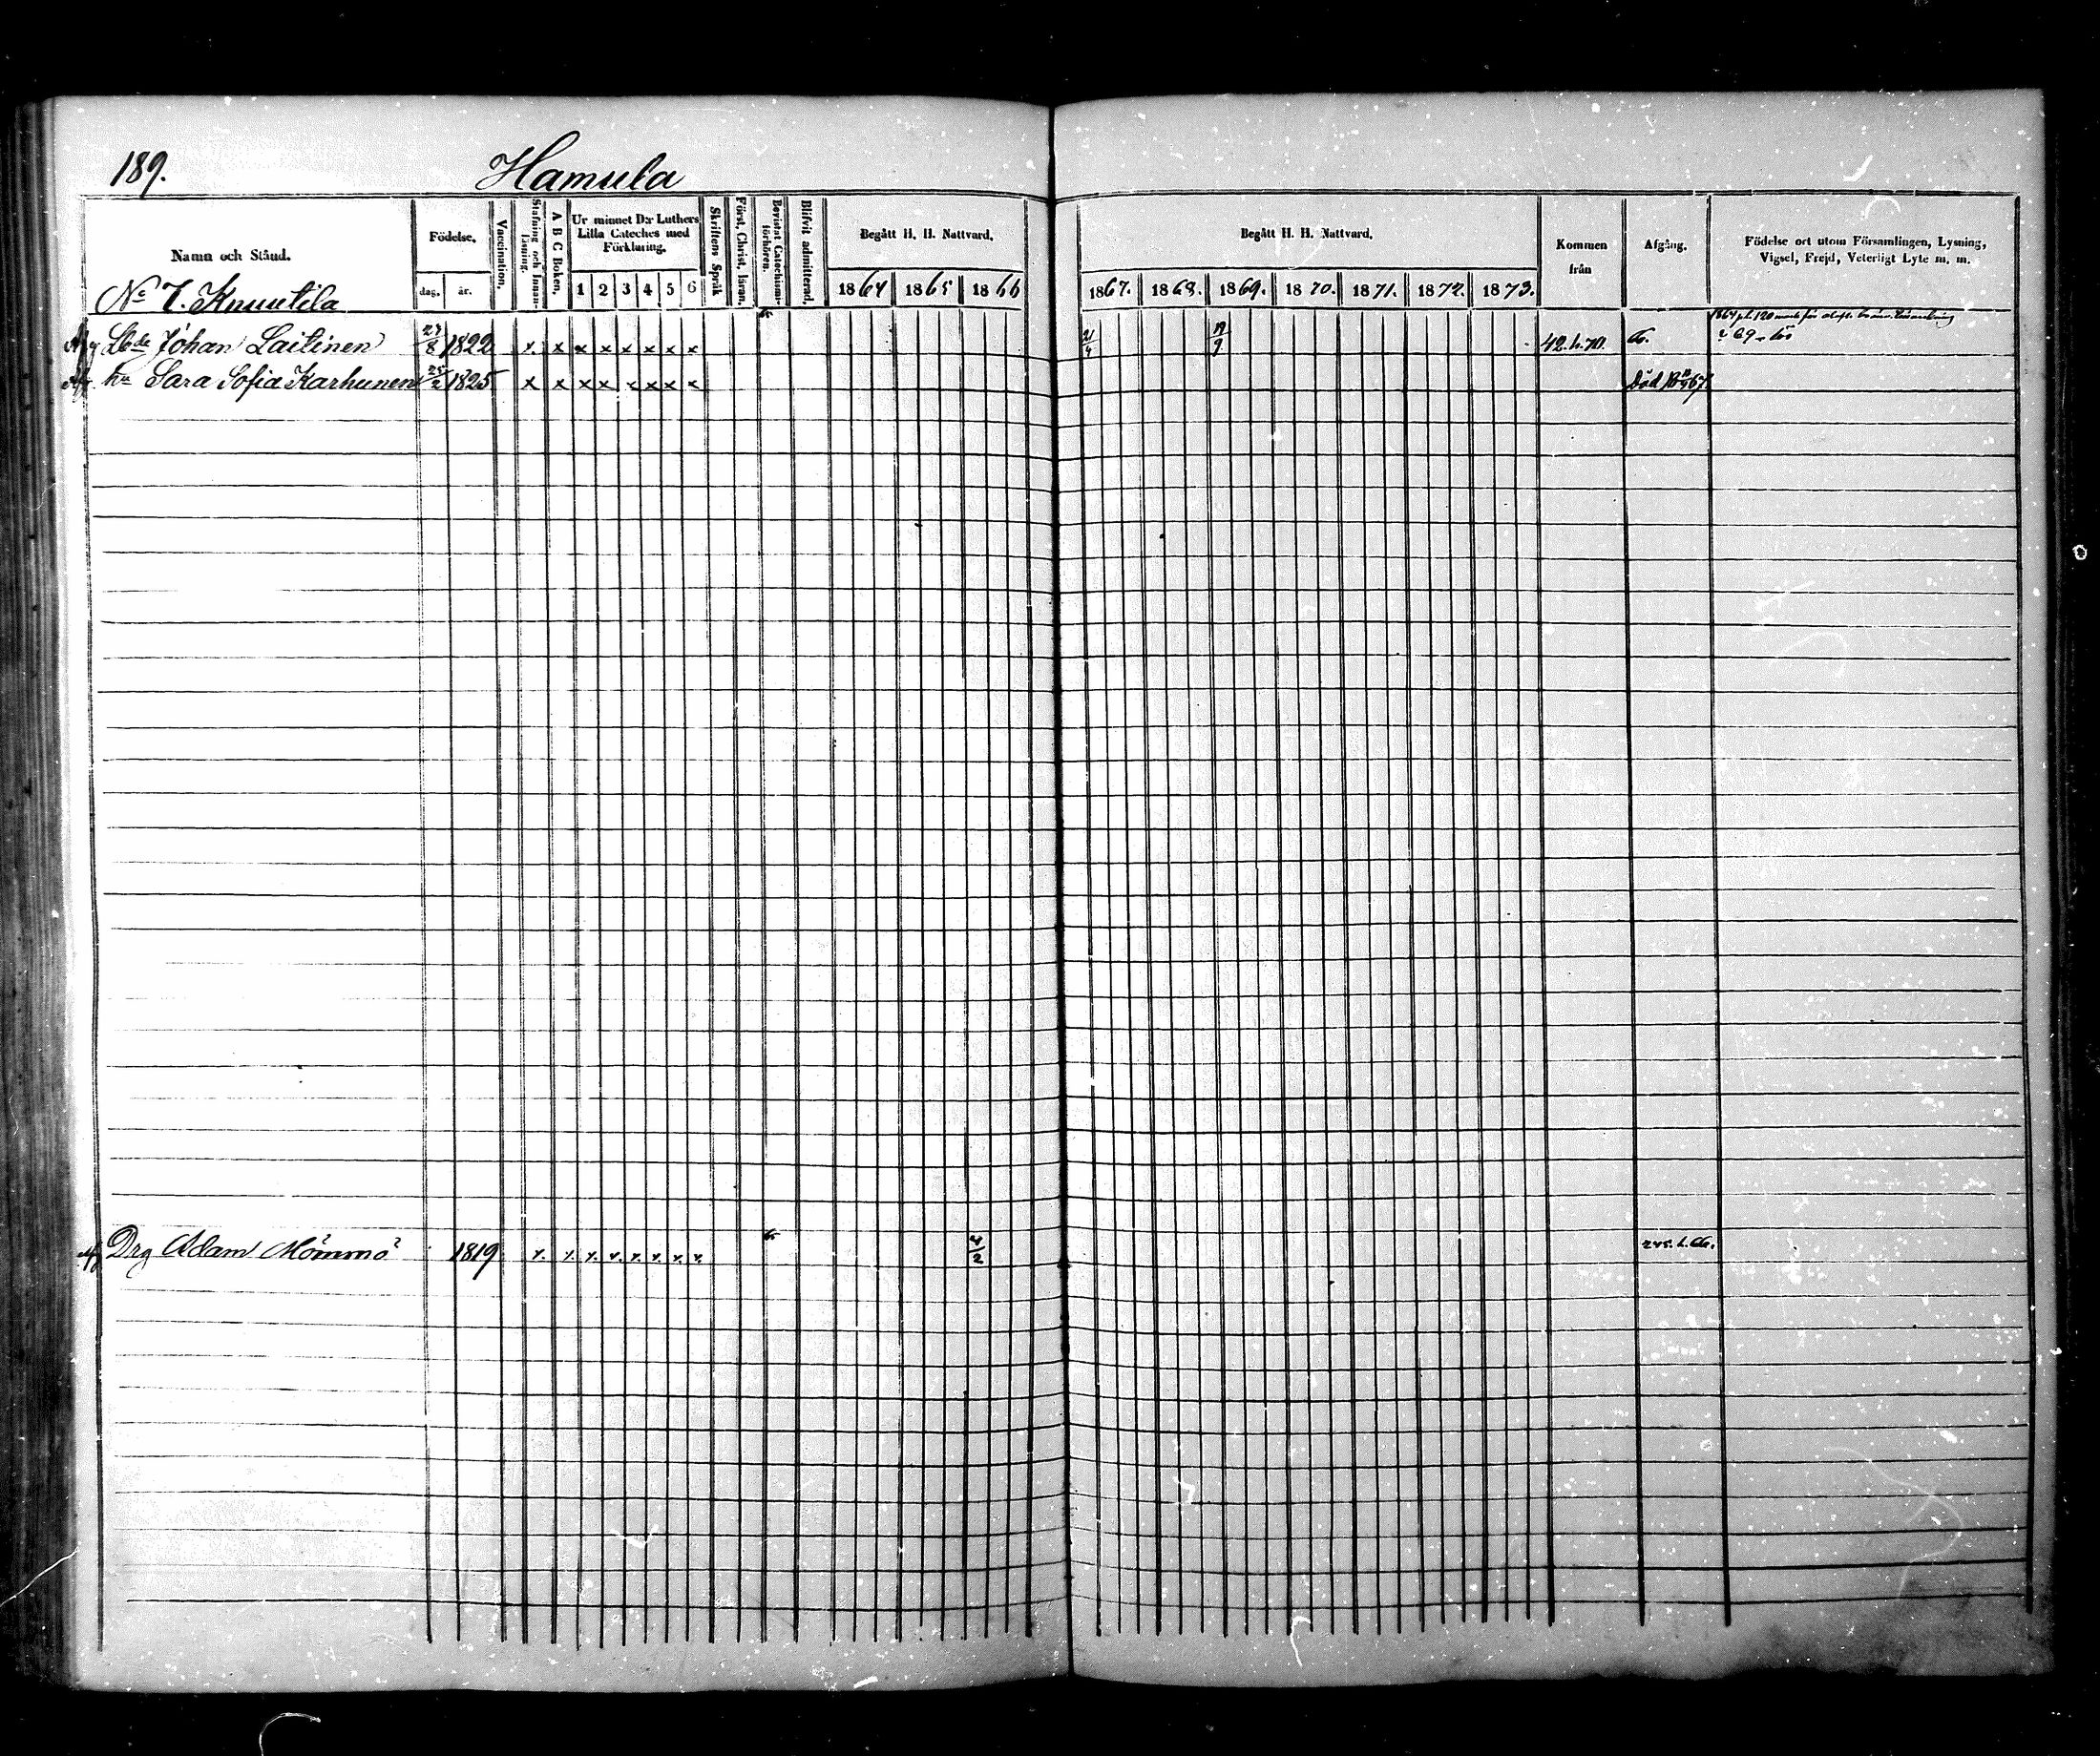 189. Hamula
Namn och Stånd.
Födelse.
dag.
år.
Vaccination.
Stafning och Innanläsning.
A B C Boken.
Ur minnet D:r Luthers
Lilla Cateches med
Förklaring.
1 2 3 4 5 6
Skriftens Språk
Först. Christ. läran.
Bevistat Catechismi-
förhören.
Blifvit admitterad.
Begått H. H. Nattvard.
1864 1865 1866
Begått H. H. Nattvard.
1867. 1868. 1869. 1870. 1871. 1872. 1873.
Kommen
från
Afgång.
Födelse ort utom Församlingen, Lysning,
Vigsel, Frejd, Veterligt Lyte m. m.
No 7. Knuutila
Johan Laitinen 1822 x x x x x x x x 21/4 19/9 42.h.70.
hu Sara Sofia Karhunen 25/2 1825 x x x x x x x x Död 67.
Drg Adam Mömmö 1819 x. x. x. x. x. x. x. x. 4/2